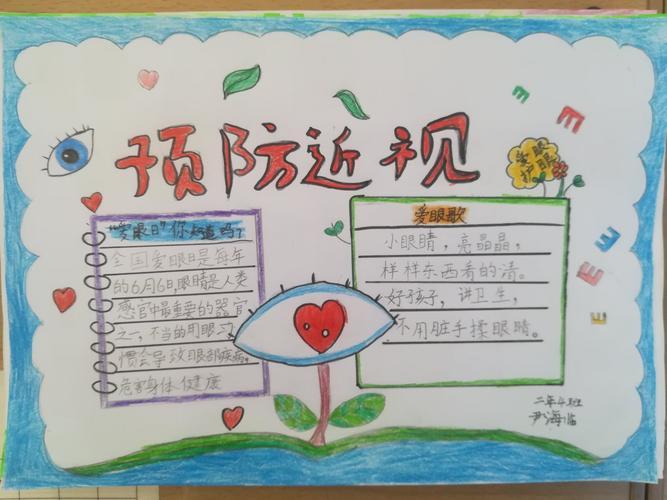 预防近视
爱眼
护眼
"爱眼日"你知道吗？
全国爱眼日是每年
的6月6日,眼睛是人类
感官中最重要的器官
之一,不当的用眼习
惯会导致眼部疾病,
危害身体健康
爱眼歌
小眼睛，亮晶晶，
样样东西看的清。
好孩子，讲卫生，
不用脏手揉眼睛。
二年4班
尹海临
E
E
E
E
E